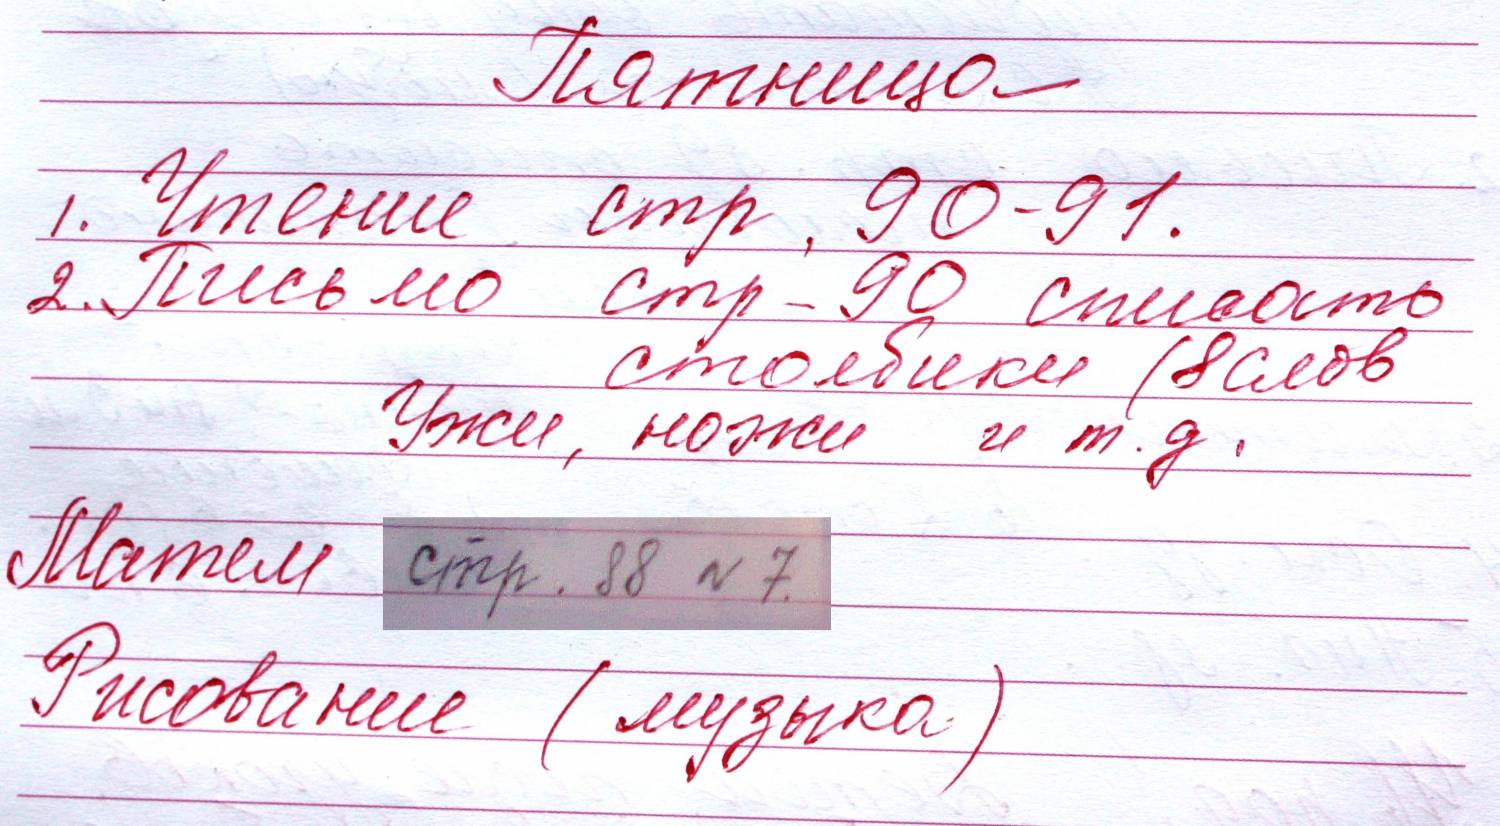 Пятница
1. Чтение стр. 90-91.
2. Письмо стр - 90 списать
столбики (8 слов
Ужи, ножи и т.д.
Матем стр. 88 N 7.
Рисование (музыка)